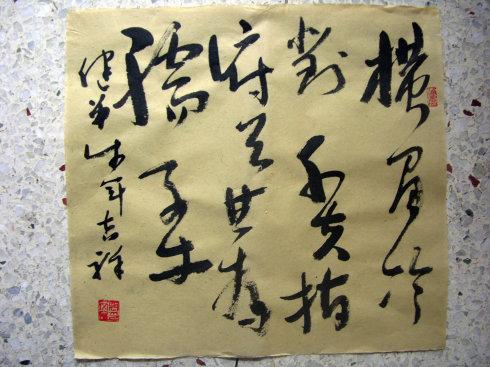 橫眉冷
對千夫指
俯首甘為
孺子牛
健弟牛年吉祥